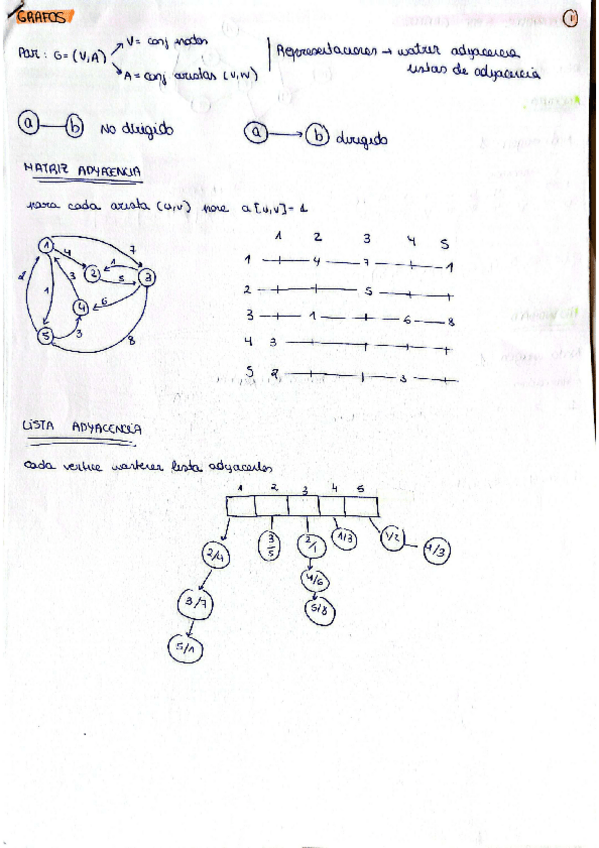 GRAFOS
1
Par: G=(V,A)
V= conj nodos
A= conj aristas (v,w)
Representaciones → matriz adyacencia
listas de adyacencia
a b No dirigido
a b dirigido
MATRIZ ADYACENCIA
para cada arista (u,v) pone a[u,v]=1
1 2 3 4 5
1 4 7 1
2 5
3 1 6 8
4 3
5 2 3
1 4 7 2 1 5 3
2 1 3 4 6
5 3 8
LISTA ADYACENCIA
cada vertice mantener lista adyacentes
1 2 3 4 5
2/4 3/5 2/1 1/3 1/2 4/3
3/7 4/6
5/1 5/8